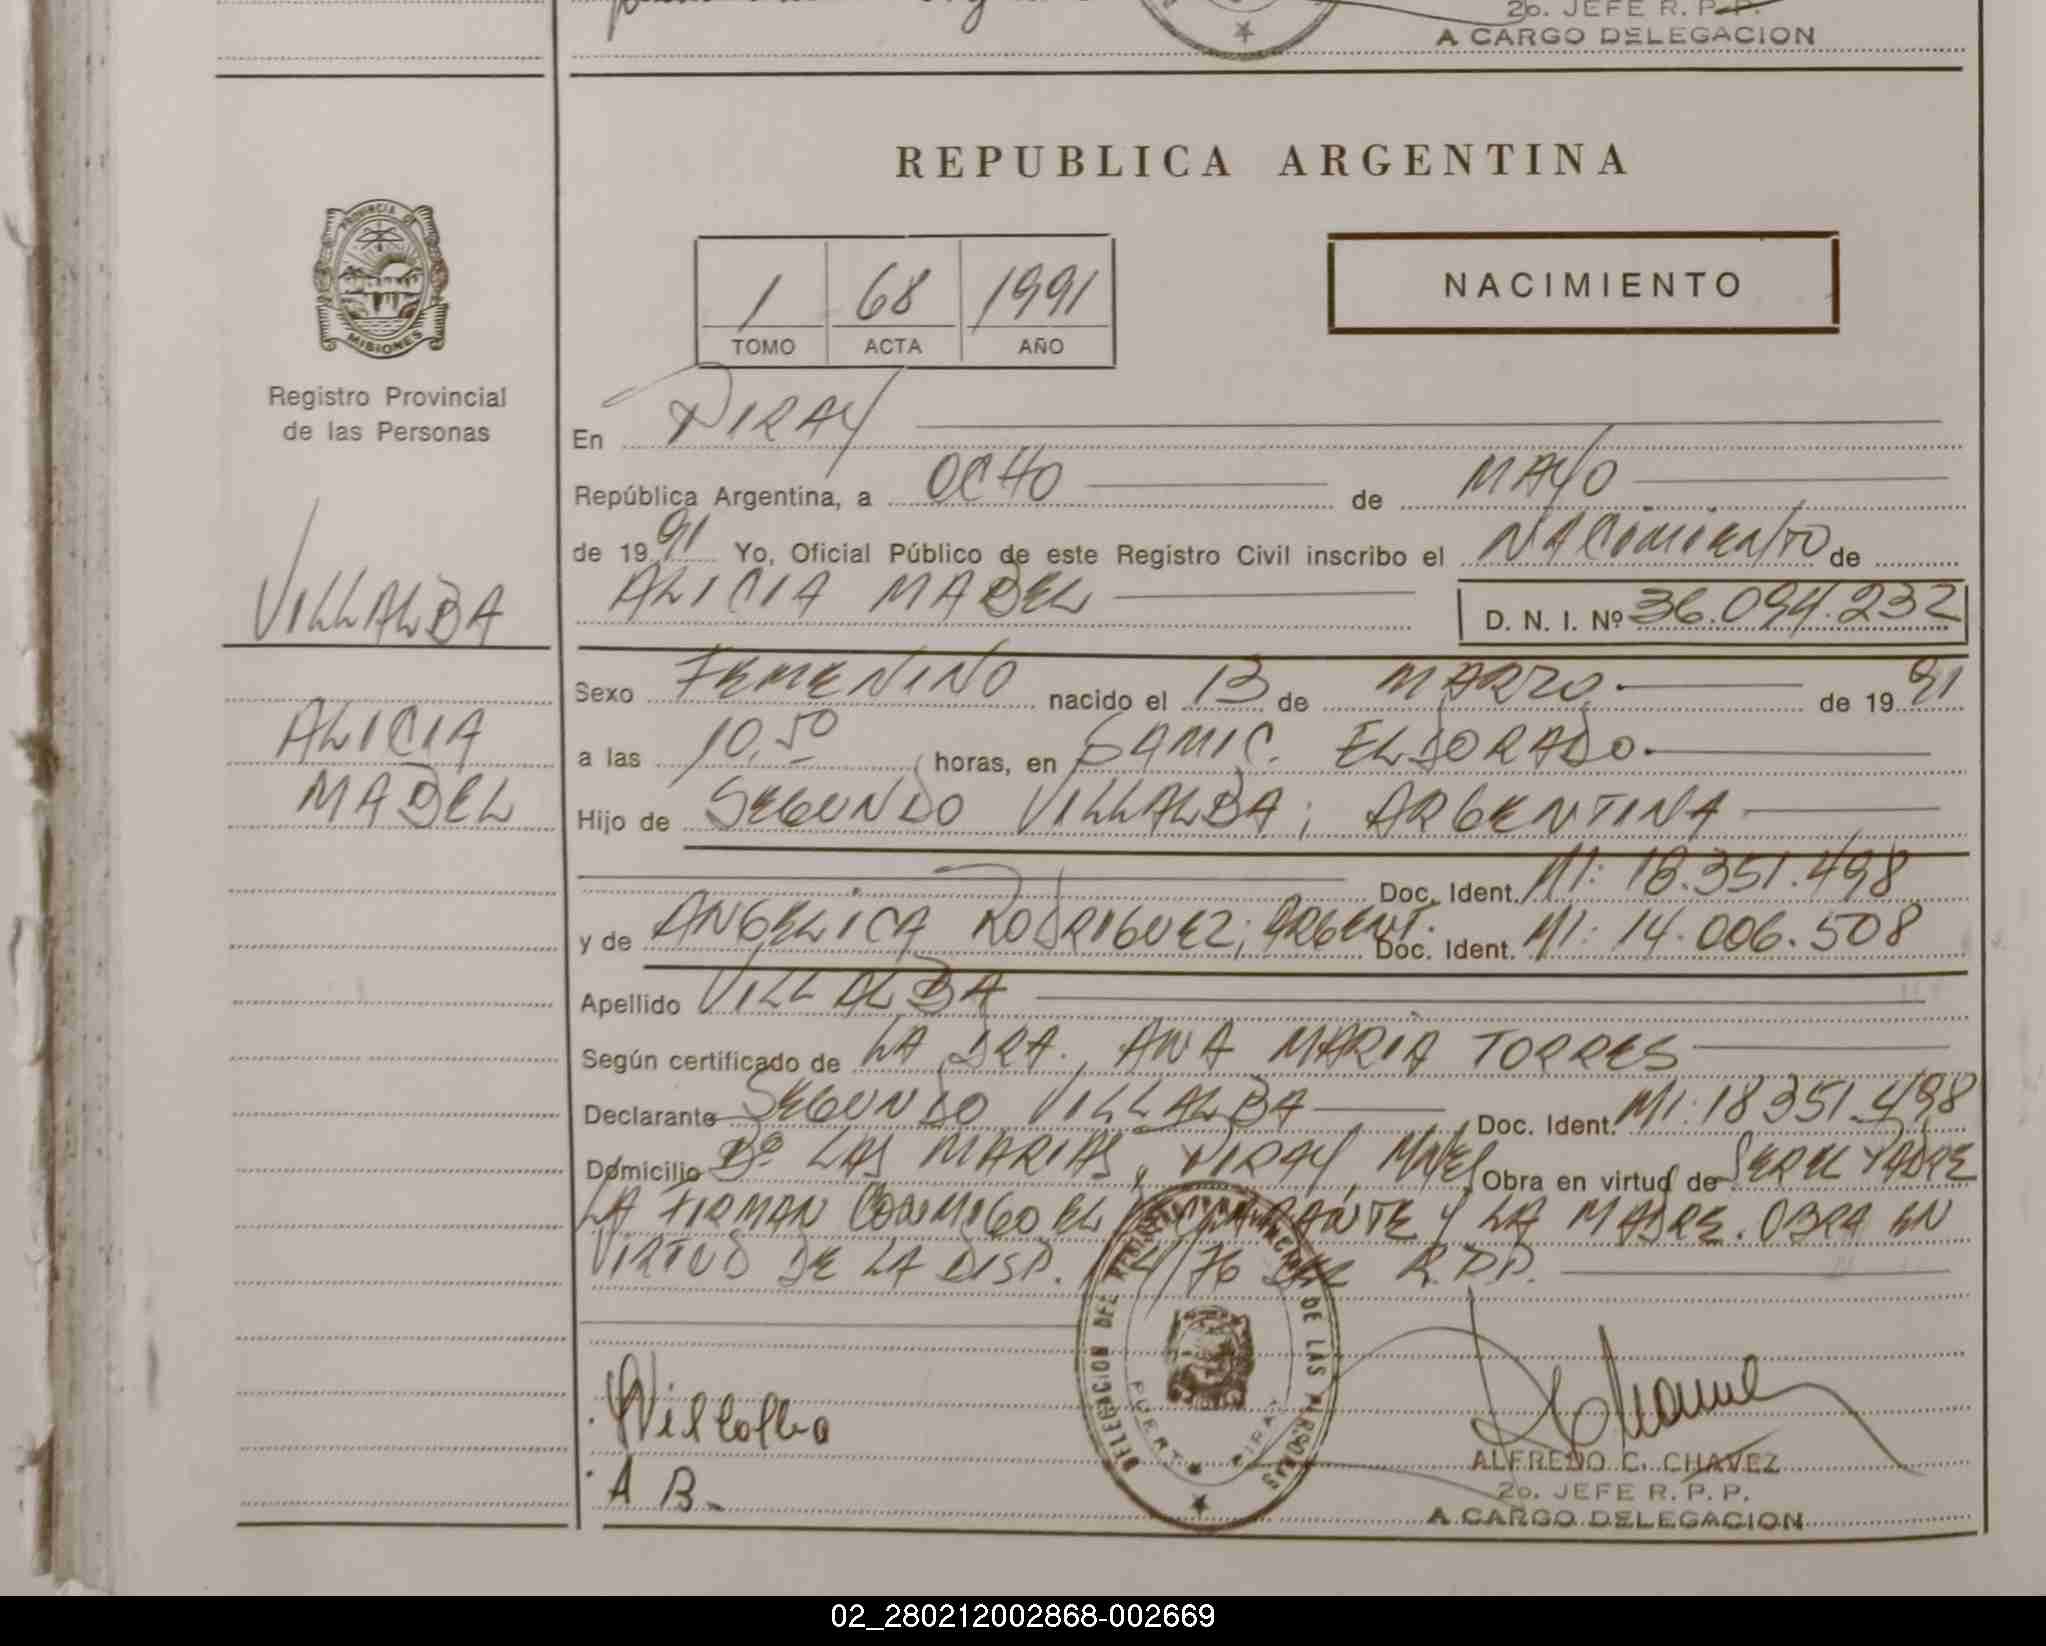 2o. JEFE R. P. P.
A CARGO DELEGACION
REPUBLICA ARGENTINA
PROVINCIA DE
MISIONES
Registro Provincial
de las Personas
1 68 1991
TOMO ACTA AÑO
NACIMIENTO
En PIRAY
República Argentina, a OCHO de MAYO
de 1991 Yo, Oficial Público de este Registro Civil inscribo el NACimiENTO de
ALICIA MABEL
D. N. I. Nº 36.094.232
VILLALBA
ALICIA
MABEL
Sexo FEMENINO nacido el 13 de MARZO de 1991
a las 10,50 horas, en SAMIC. ELDORADO.
Hijo de SEGUNDO VILLALBA; ARGENTINA
Doc. Ident. MI: 18.351.498
y de ANGELICA RODRIGUEZ; ARGENT. Doc. Ident. MI: 14.006.508
Apellido VILLALBA
Según certificado de LA DRA. ANA MARIA TORRES
Declarante SEGUNDO VILLALBA Doc. Ident. MI: 18351.498
Domicilio Bº LAS MARIAS, PIRAY, Mnes Obra en virtud de SER EL PADRE
LA FIRMAN CONMIGO EL DECLARANTE Y LA MADRE. OBRA EN
VIRTUD DE LA DISP. /76 DEL R.P.P.
Villalba
A B.
DELEGACION DEL REGISTRO PROVINCIAL DE LAS PERSONAS
PUERTO PIRAY
ALFREDO C. CHAVEZ
2o. JEFE R. P. P.
A CARGO DELEGACION
02_280212002868-002669